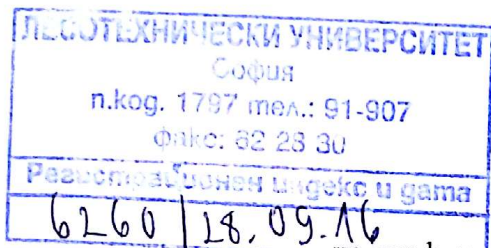 ЛЕСОТЕХНИЧЕСКИ УНИВЕРСИТЕТ
София
п.код. 1797 тел.: 91-907
факс: 62 28 30
Регистрационен индекс и дата
6260 | 28.09.16